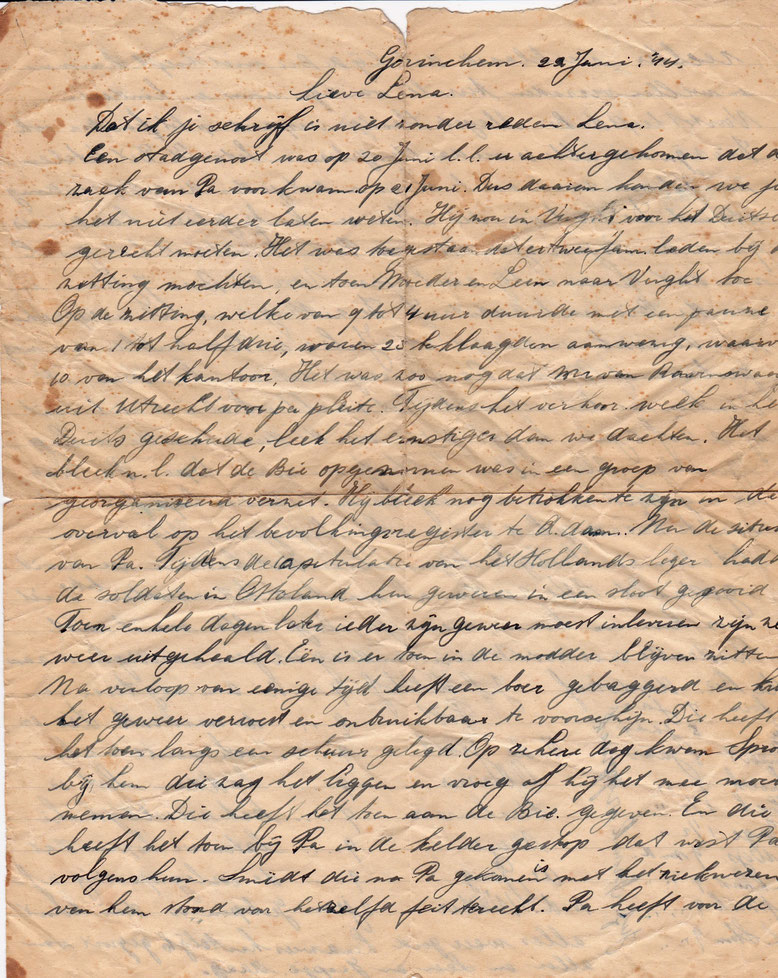 Gorinchem. 22 Juni. '44.
Lieve Lena.
Dat ik je schrijf is niet zonder reden Lena.
Een stadgenoot was op 20 Juni l.l. er achtergekomen dat d
zaak van Pa voorkwam op 21 Juni. Dus daarom konden we j
het niet eerder laten weten. Hij nou in Vught voor het Duitsc
gerecht moeten. Het was toegestaan dat er twee fam. leden bij d
zitting mochten, en toen Moeder en Leen naar Vught toe
Op de zitting, welke van 9 tot 4 uur duurde met een pauze
van 1 tot half drie, waren 23 beklaagden aanwezig, waarv
10 van het kantoor. Het was zoo nog dat mr van
uit Utrecht voor pa pleite. Tijdens het verhoor welk in he
Duits geschiede, leek het ernstiger dan we dachten. Het
bleek n.l. dat de Bie opgenomen was in een groep van
georganiseerd verzet. Hij bleek nog betrokken te zijn in de
overval op het bevolkingsregister te A.dam. Nu de
van Pa. Tijdens de capitulatie van het Hollands leger hadd
de soldaten in Ottoland hun geweren in een sloot gegooid
Toen enkele dagen later ieder zijn geweer moest inleveren zijn ze
weer uitgehaald. Eén is er toen in de modder blijven zitten
Na verloop van eenige tijd heeft een boer gebaggerd en
het geweer verroest en onbruikbaar te voorschijn. Die heeft
het toen langs een schuur gelegd. Op zekere dag kwam Spro
bij hem die zag het liggen en vroeg of hij het mee moc
nemen. Die heeft het toen aan de Bie. gegeven. En die
heeft het toen bij Pa in de kelder gestop dat wist Pa
volgens hun. Smidt die na Pa gekomen is met het
van hem stond voor hetzelfd feit terecht. Pa heeft voor de